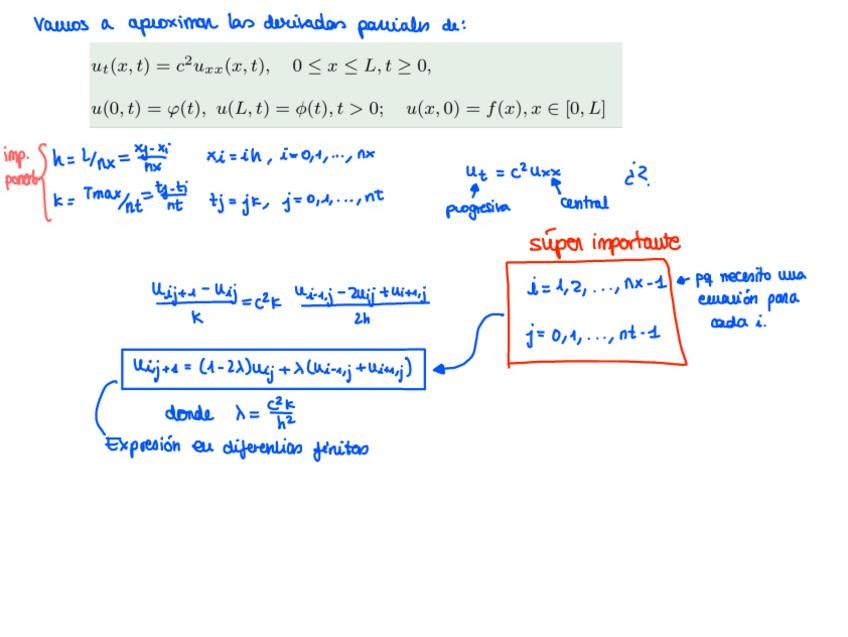 Vamos a aproximar las derivadas parciales de:
u_t(x, t) = c²u_xx(x, t), 0 ≤ x ≤ L, t ≥ 0,
u(0, t) = φ(t), u(L, t) = ϕ(t), t > 0; u(x, 0) = f(x), x ∈ [0, L]
imp.
ponerlo
h = L/nx = (xf - xi)/nx xi = ih, i = 0,1,..., nx
k = Tmax/nt = (tf - ti)/nt tj = jk, j = 0,1,..., nt
u_t = c²u_xx ¿?
progresiva central
súper importante
i = 1,2,..., nx-1 ← pq necesito una
ecuación para
cada i.
j = 0,1,..., nt-1
(u_ij+1 - u_ij)/k = c²k (u_i-1,j - 2u_ij + u_i+1,j)/2h
u_ij+1 = (1-2λ)u_ij + λ(u_i-1,j + u_i+1,j)
donde λ = c²k/h²
Expresión en diferencias finitas